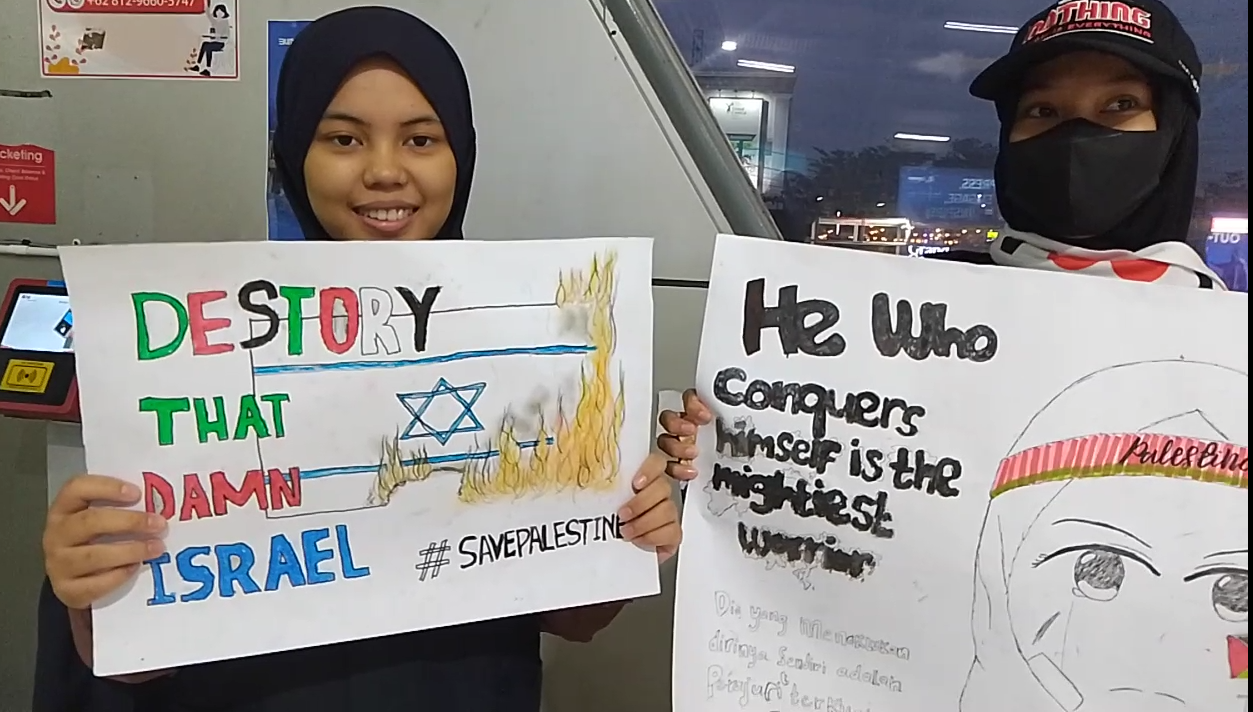 +62 812-9660-5747
cketing
NOTHING
DESTORY
THAT
DAMN
ISRAEL
#SAVEPALESTINE
He Who
Conquers
himself is the
mightiest
Warrior
Palestina
Dia yang Menaklukan
dirinya Sendiri adalah